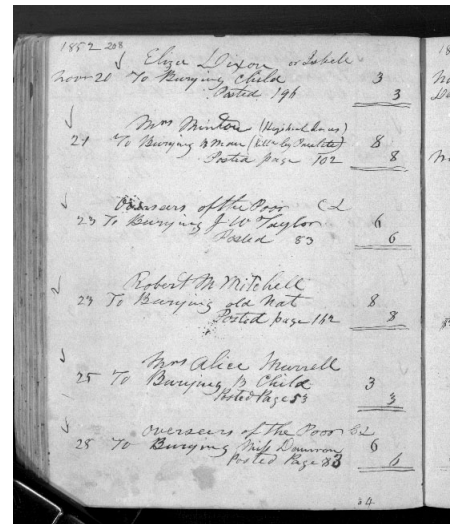 1852 208
Eliza Dixon or Isbell
Novr 20 To Burying Child 3
Posted 196 3
Mrs Minton (Hospital)
21 To Burying B man (kill by) 8
Posted page 102 8
Overseers of the Poor C2
23 To Burying J W Taylor 6
Posted 83 6
Robert M Mitchell
23 To Burying old Nat 8
Posted page 162 8
Mrs Alice Murrell
25 To Burying B Child 3
Posted Page 53 3
overseers of the Poor C2
28 To Burying Miss 6
Posted Page 83 6
84
18